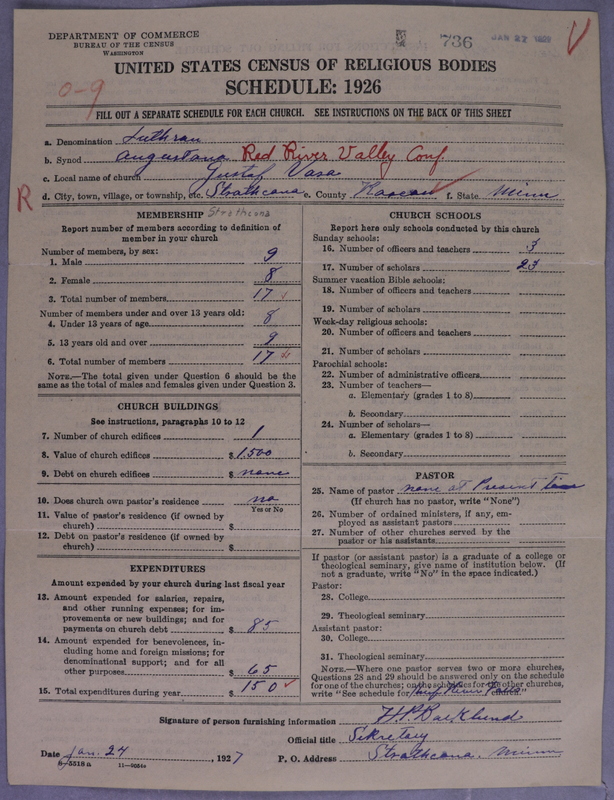 DEPARTMENT OF COMMERCE
BUREAU OF THE CENSUS
WASHINGTON
736
JAN 27 1927
UNITED STATES CENSUS OF RELIGIOUS BODIES
SCHEDULE: 1926
0-9
FILL OUT A SEPARATE SCHEDULE FOR EACH CHURCH. SEE INSTRUCTIONS ON THE BACK OF THIS SHEET
a. Denomination Luthran
b. Synod Augustana Red River Valley Conf.
c. Local name of church Gustaf Vasa
R
d. City, town, village, or township, etc. Strathcona e. County Roseau f. State Minn
MEMBERSHIP Strathcona
Report number of members according to definition of
member in your church
Number of members, by sex:
1. Male 9
2. Female 8
3. Total number of members 17
Number of members under and over 13 years old:
4. Under 13 years of age 8
5. 13 years old and over 9
6. Total number of members 17
NOTE.—The total given under Question 6 should be
same as the total of males and females given under Question 3.
CHURCH BUILDINGS
See instructions, paragraphs 10 to 12
7. Number of church edifices 1
8. Value of church edifices $1,500
9. Debt on church edifices $ none
10. Does church own pastor's residence no
Yes or No
11. Value of pastor's residence (if owned by
church) $
12. Debt on pastor's residence (if owned by
church) $
EXPENDITURES
Amount expended by your church during last fiscal year
13. Amount expended for salaries, repairs,
and other running expenses; for im-
provements or new buildings; and for
payments on church debt $ 85
14. Amount expended for benevolences, in-
cluding home and foreign missions; for
denominational support; and for all
other purposes $ 65
15. Total expenditures during year $ 150
CHURCH SCHOOLS
Report here only schools conducted by this church
Sunday schools:
16. Number of officers and teachers 3
17. Number of scholars 23
Summer vacation Bible schools:
18. Number of officers and teachers
19. Number of scholars
Week-day religious schools:
20. Number of officers and teachers
21. Number of scholars
Parochial schools:
22. Number of administrative officers
23. Number of teachers—
a. Elementary (grades 1 to 8)
b. Secondary
24. Number of scholars—
a. Elementary (grades 1 to 8)
b. Secondary
PASTOR
25. Name of pastor none at Present time
(If church has no pastor, write "None")
26. Number of ordained ministers, if any, em-
ployed as assistant pastors
27. Number of other churches served by the
pastor or his assistants
If pastor (or assistant pastor) is a graduate of a college or
theological seminary, give name of institution below. (If
not a graduate, write "No" in the space indicated.)
Pastor:
28. College
29. Theological seminary
Assistant pastor:
30. College
31. Theological seminary
NOTE.—Where one pastor serves two or more churches,
Questions 28 and 29 should be answered only on the schedule
for one of the churches; on the schedules for the other churches,
write "See schedule for church"
Signature of person furnishing information H.P. Backlund
Official title Sekretary
Date Jan. 24, 1927 P. O. Address Strathcona, Minn
8-5518a 11-9054a